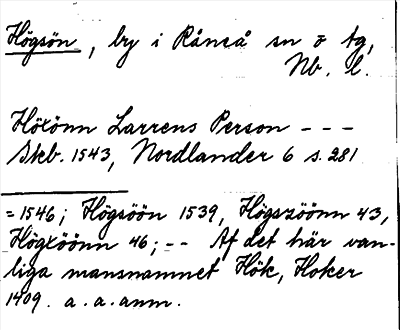 Högsön, by i Råneå sn o tg,
Nb. l.
Höxönn Larrens Person - - -
Skb. 1543, Nordlander 6 s. 281
= 1546; Högsöön 1539, Högszöönn 43,
Högxöönn 46; -- Af det här van-
liga mansnamnet Hök, Hoker
1409. a. a. anm.